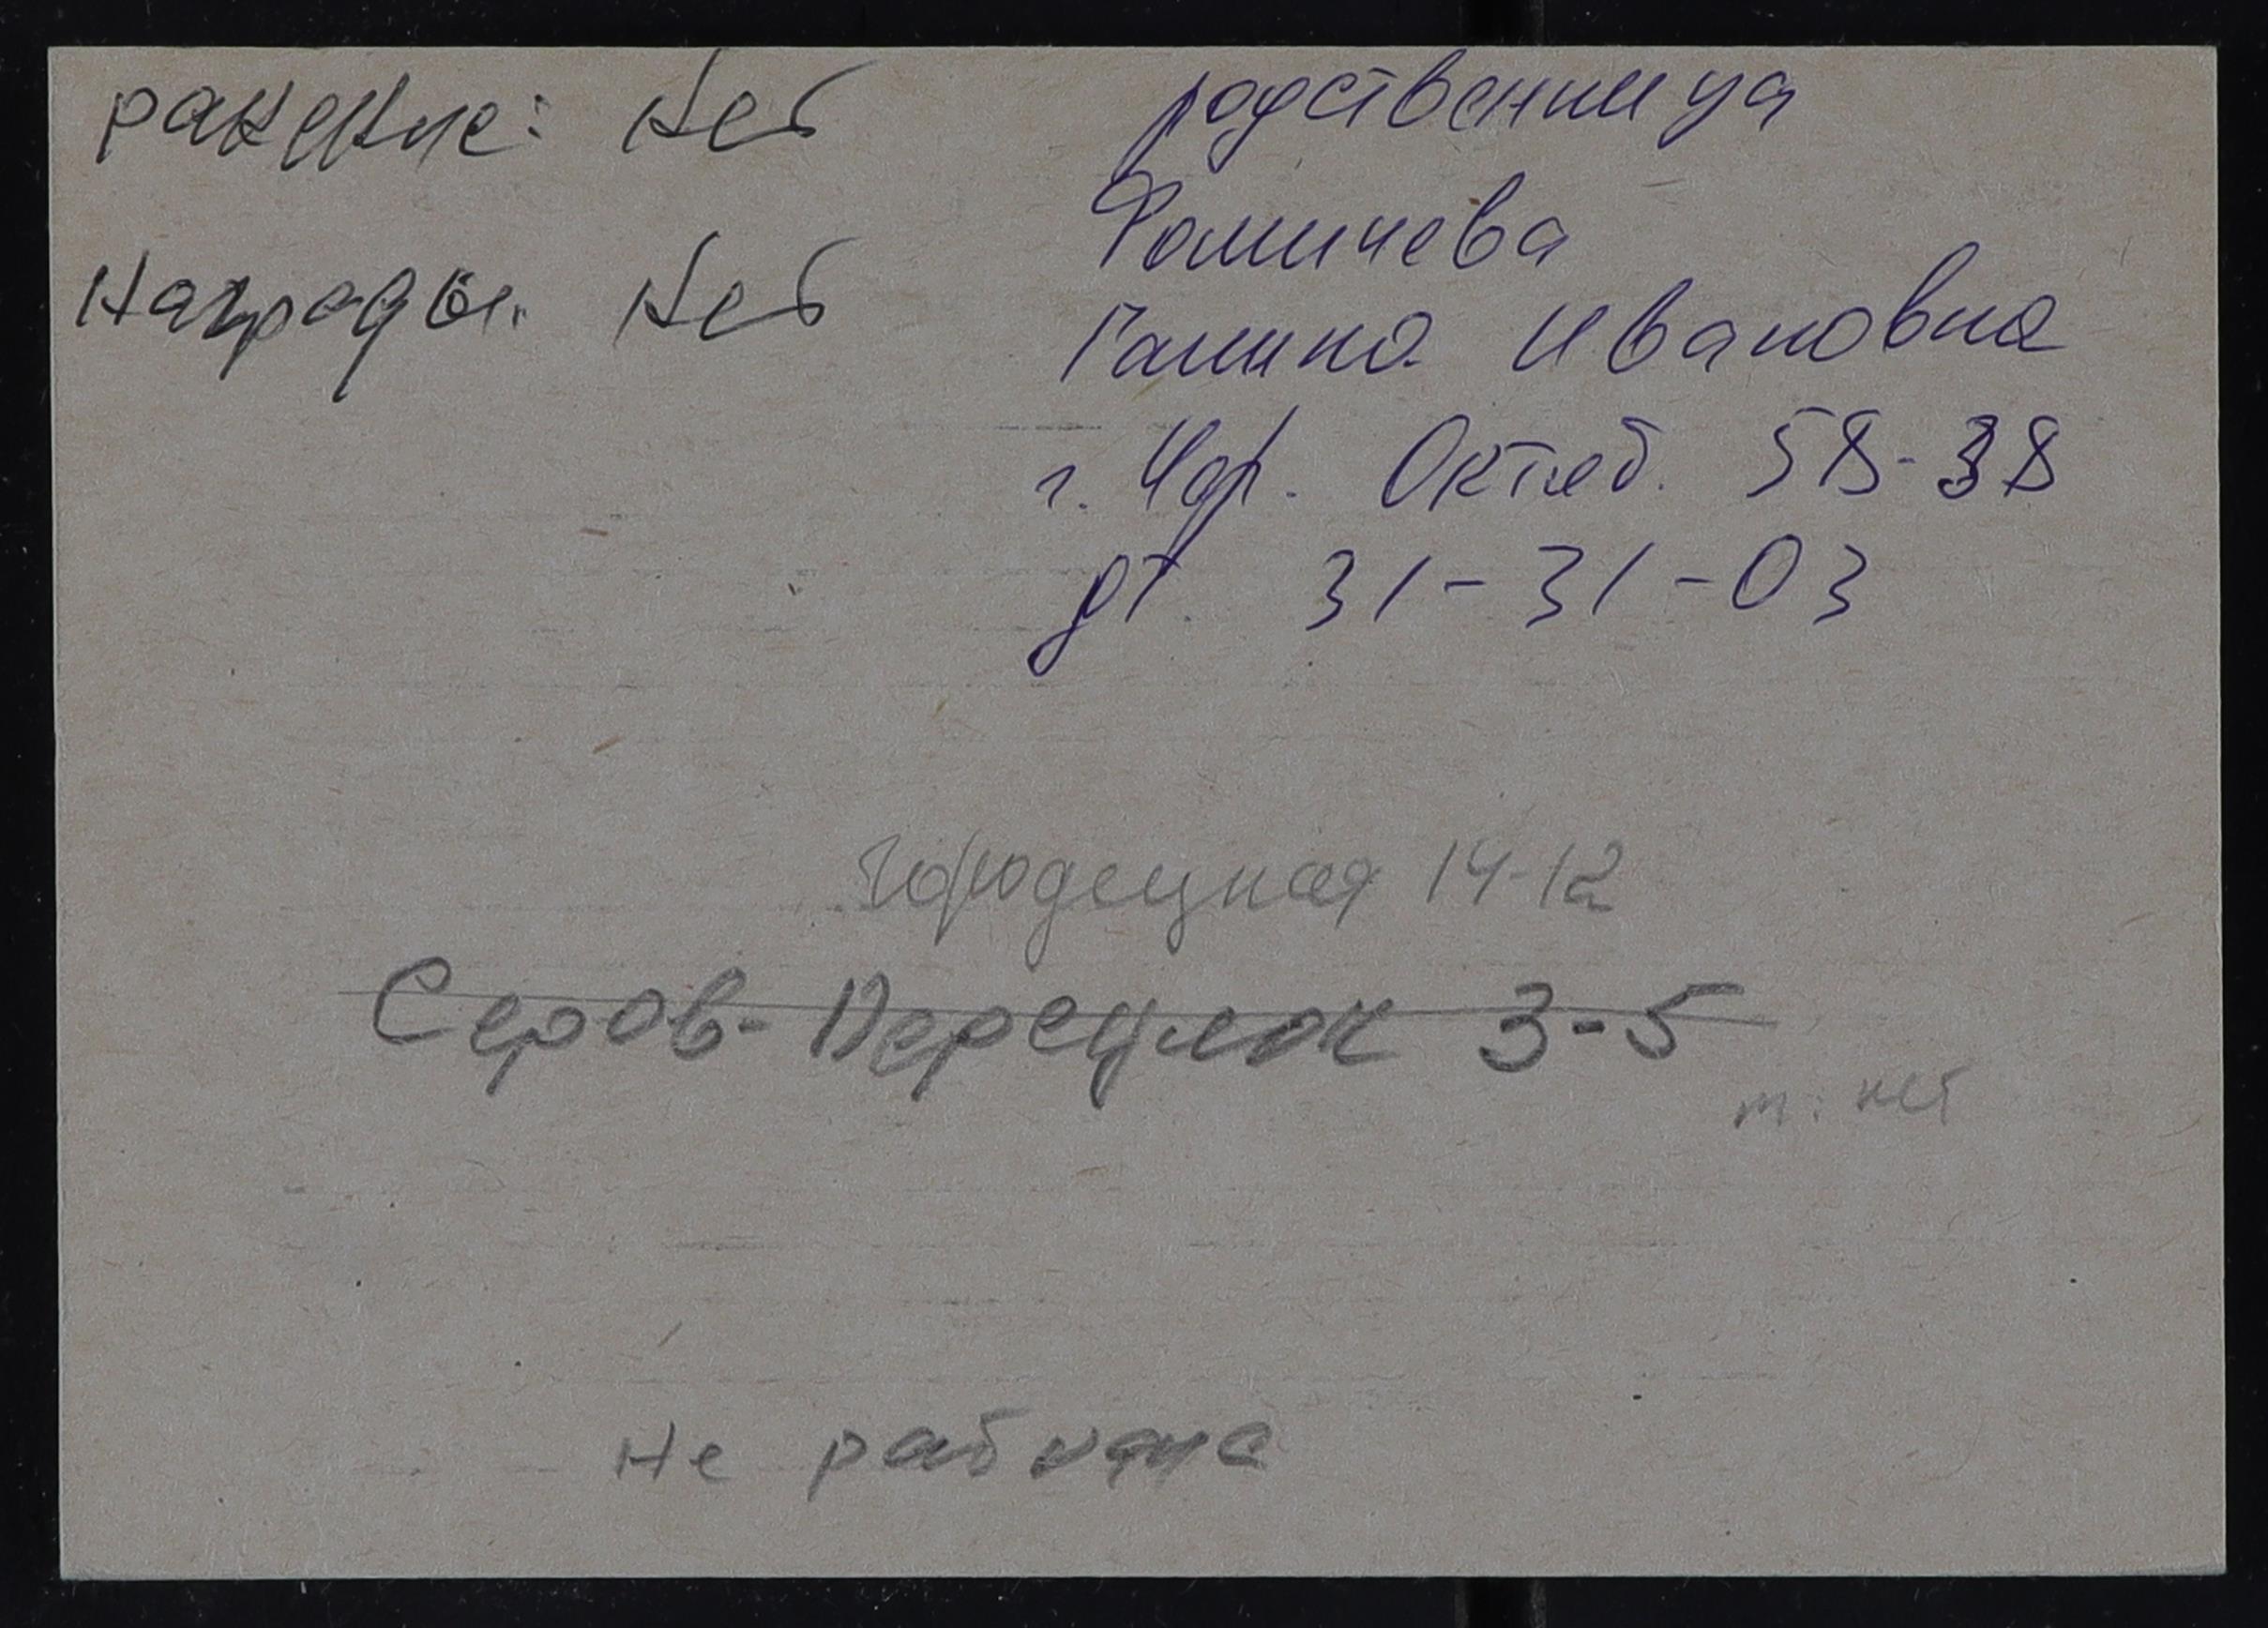 ранение: Нет
Награды: Нет
родственница
Фомичева
Галина Ивановна
г. Чер. Октяб. 58-38
дт. 31-31-03
Городецкая 14-12
Серов-Переулок 3-5
т. нет
Не